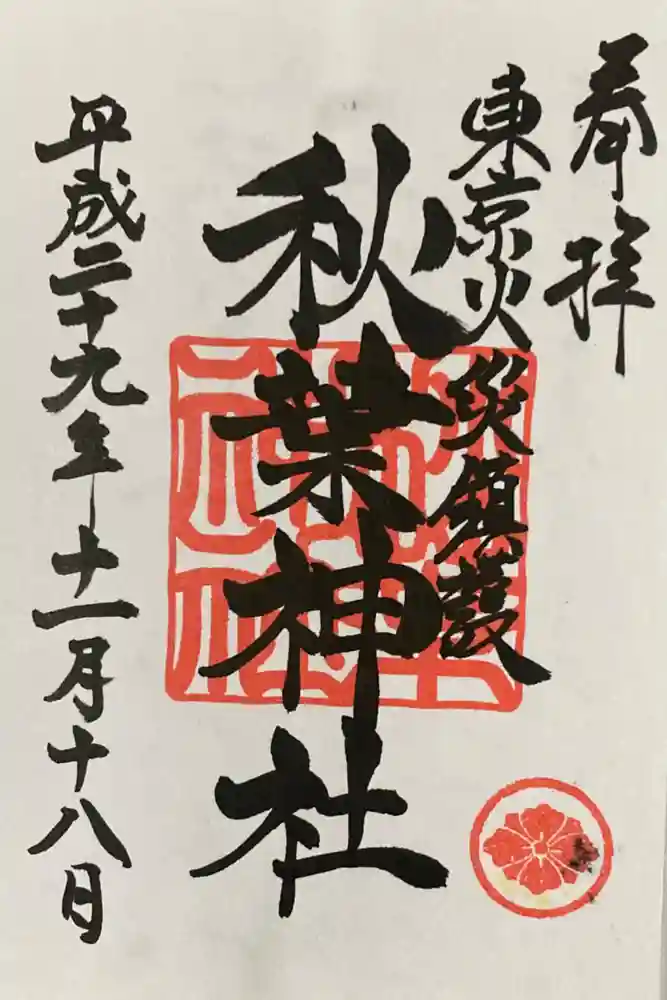 奉拝
東京火災鎮護
秋葉神社
平成二十九年十一月十八日